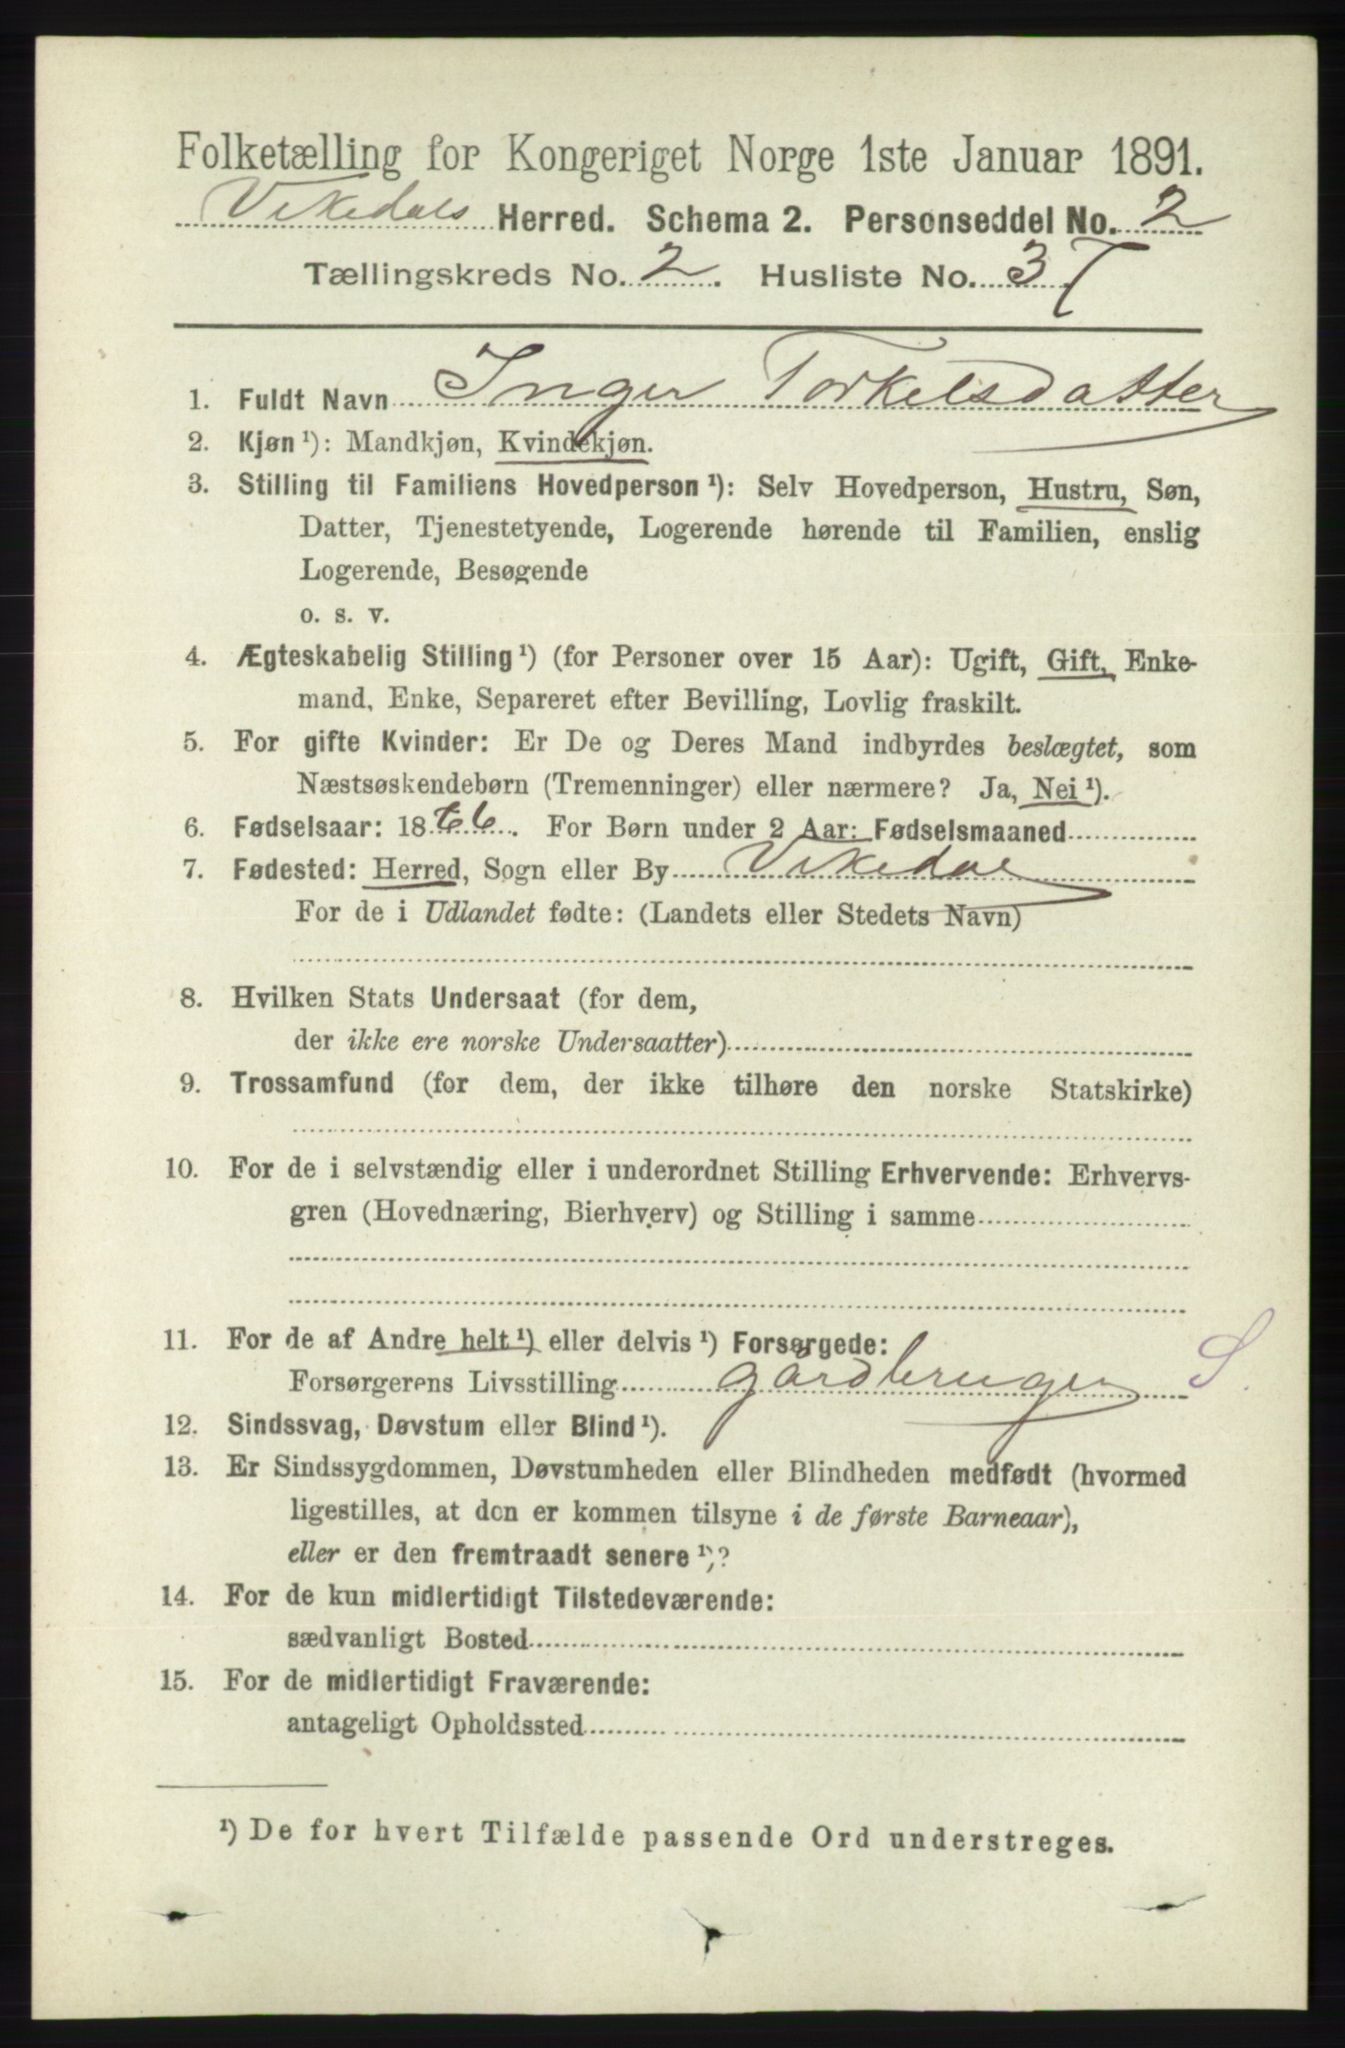 Folketælling for Kongeriget Norge 1ste Januar 1891.
Vikedals Herred. Schema 2. Personseddel No. 2
Tællingskreds No. 2. Husliste No. 37
1. Fuldt Navn Inger Torkelsdatter
2. Kjøn¹): Mandkjøn, Kvindekjøn.
3. Stilling til Familiens Hovedperson¹): Selv Hovedperson, Hustru, Søn,
Datter, Tjenestetyende, Logerende hørende til Familien, enslig
Logerende, Besøgende
o. s. v.
4. Ægteskabelig Stilling¹) (for Personer over 15 Aar): Ugift, Gift, Enke-
mand, Enke, Separeret efter Bevilling, Lovlig fraskilt.
5. For gifte Kvinder: Er De og Deres Mand indbyrdes beslægtet, som
Næstsøskendebørn (Tremenninger) eller nærmere? Ja, Nei¹).
6. Fødselsaar: 1866. For Børn under 2 Aar: Fødselsmaaned
7. Fødested: Herred, Sogn eller By Vikedal
For de i Udlandet fødte: (Landets eller Stedets Navn)
8. Hvilken Stats Undersaat (for dem,
der ikke ere norske Undersaatter)
9. Trossamfund (for dem, der ikke tilhøre den norske Statskirke)
10. For de i selvstændig eller i underordnet Stilling Erhvervende: Erhvervs-
gren (Hovednæring, Bierhverv) og Stilling i samme
11. For de af Andre helt¹) eller delvis¹) Forsørgede:
Forsørgerens Livsstilling gårdbruger S.
12. Sindssvag, Døvstum eller Blind¹).
13. Er Sindssygdommen, Døvstumheden eller Blindheden medfødt (hvormed
ligestilles, at den er kommen tilsyne i de første Barneaar),
eller er den fremtraadt senere¹)?
14. For de kun midlertidigt Tilstedeværende:
sædvanligt Bosted
15. For de midlertidigt Fraværende:
antageligt Opholdssted
¹) De for hvert Tilfælde passende Ord understreges.